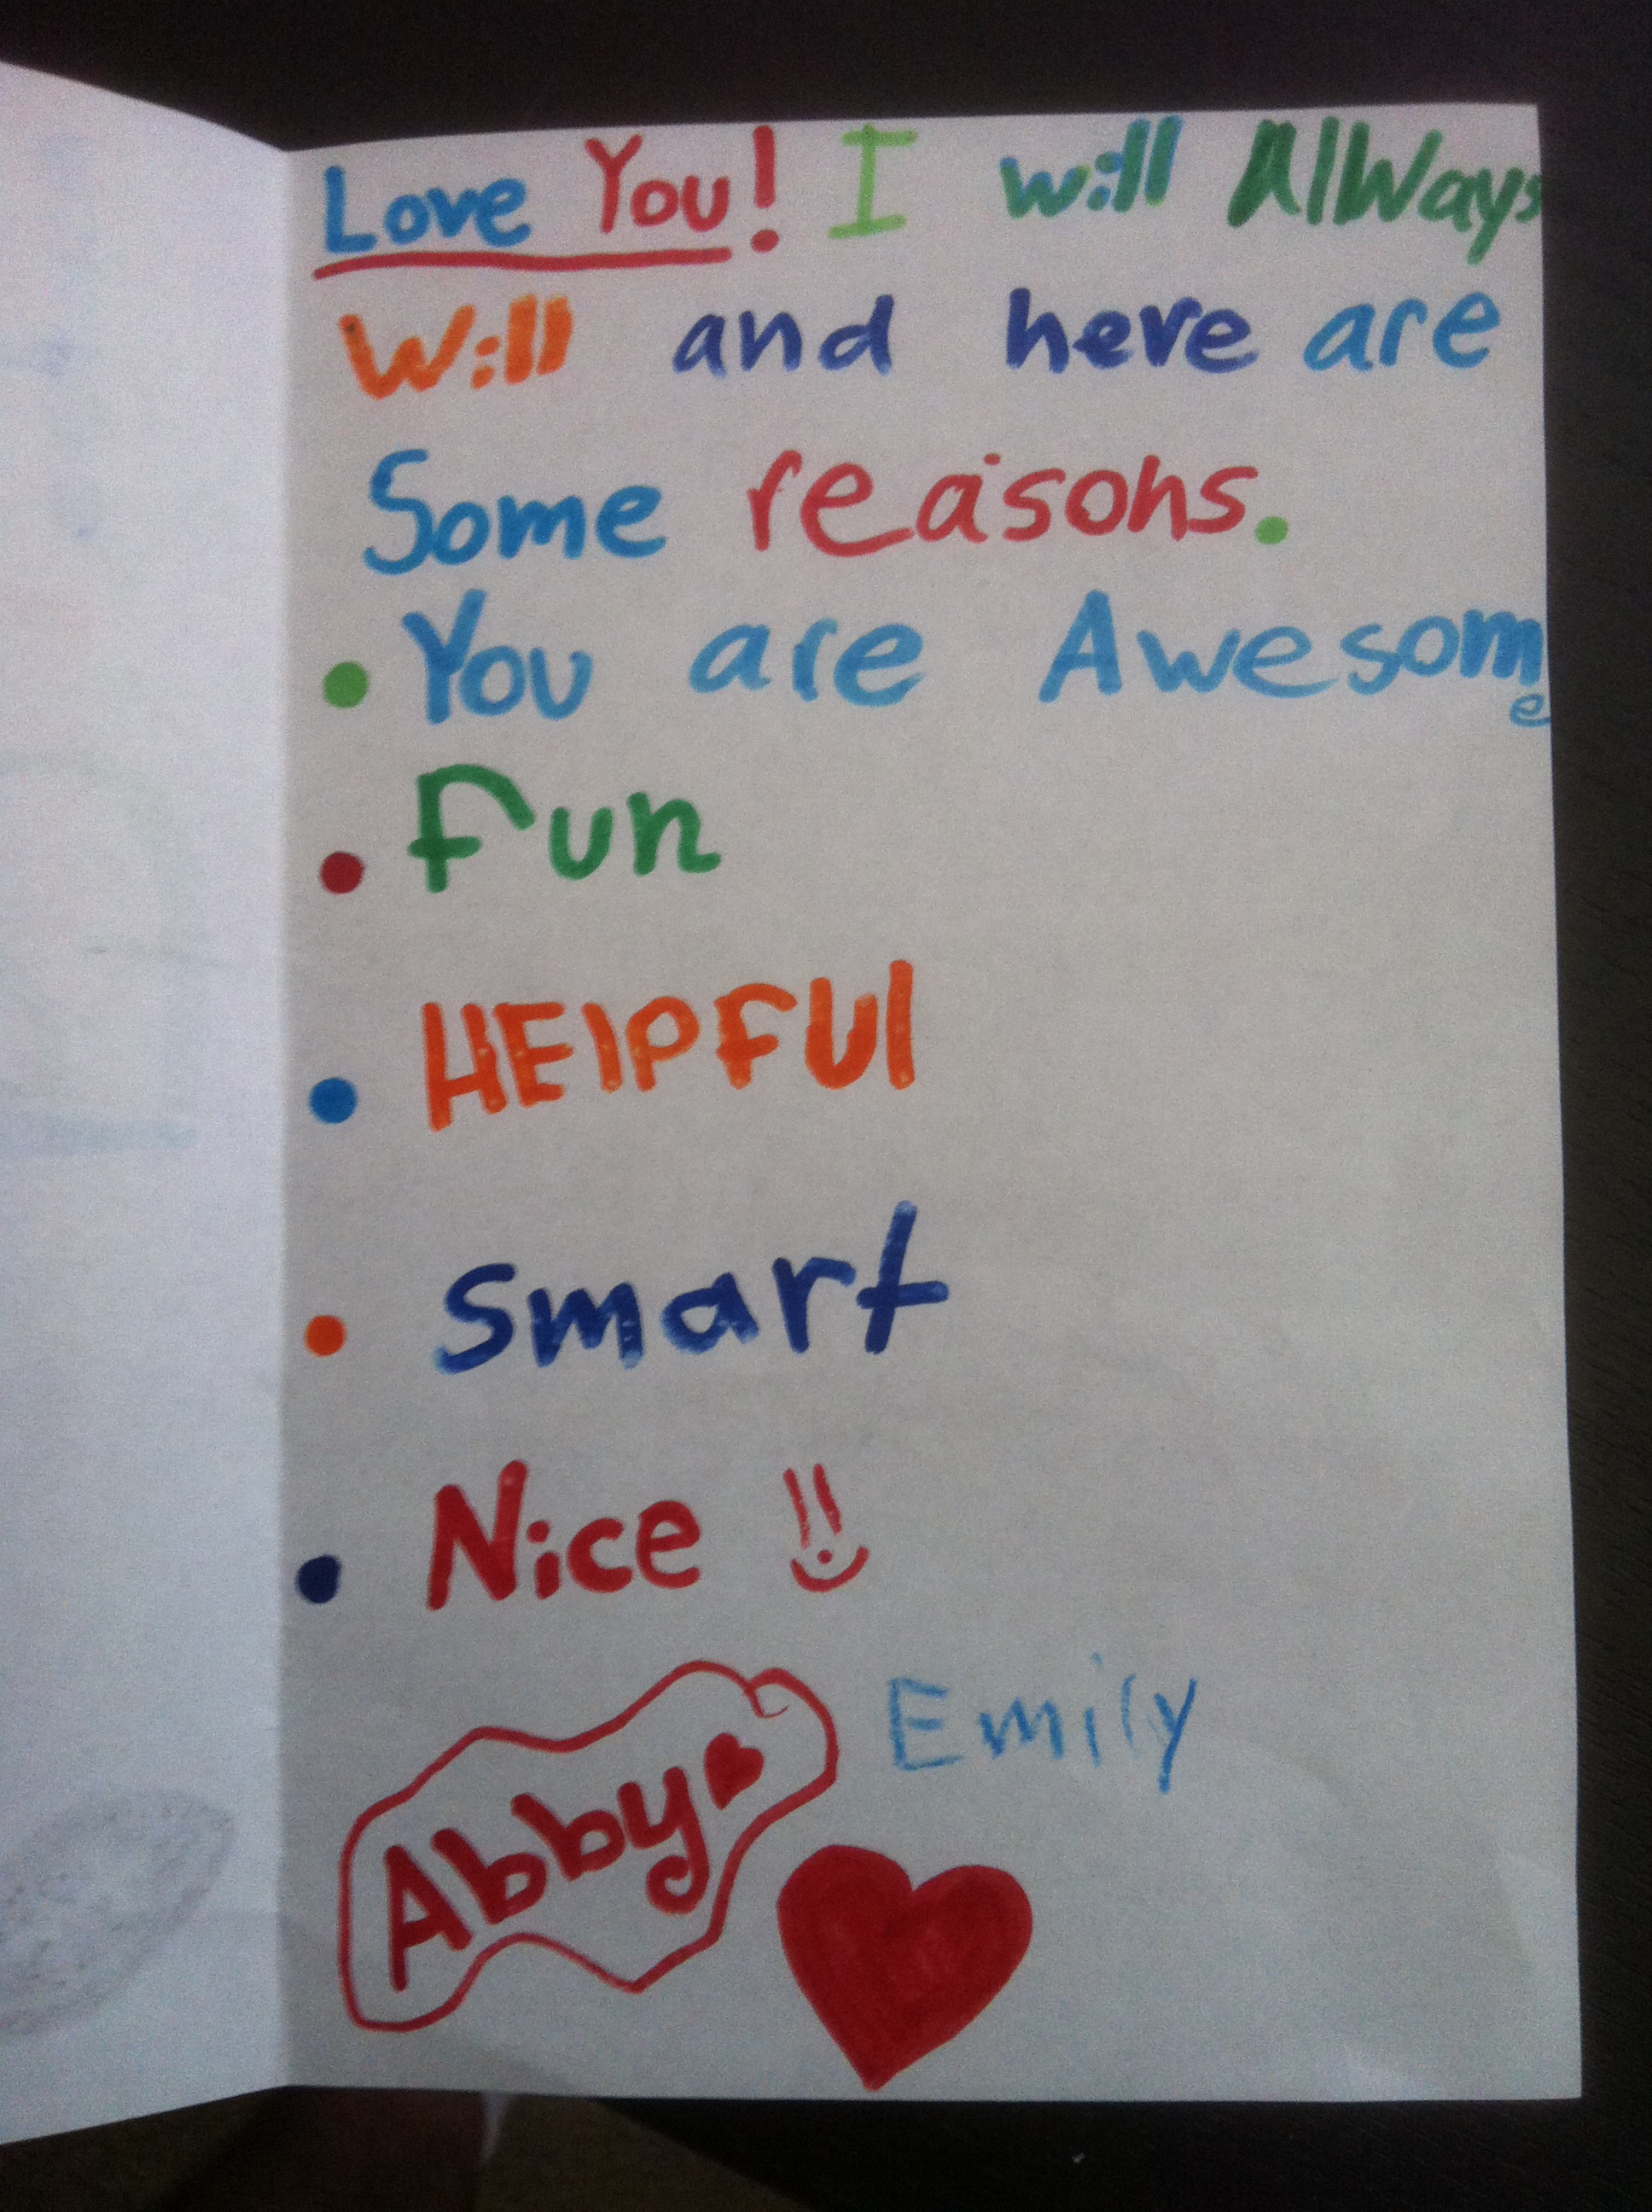 Love You! I will AlWays
Will and here are
Some reasons.
• You are Awesome
• Fun
• HElPFUl
• Smart
• Nice !!
Abby
Emily